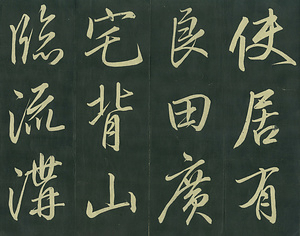 使居有
良田廣
宅背山
臨流溝